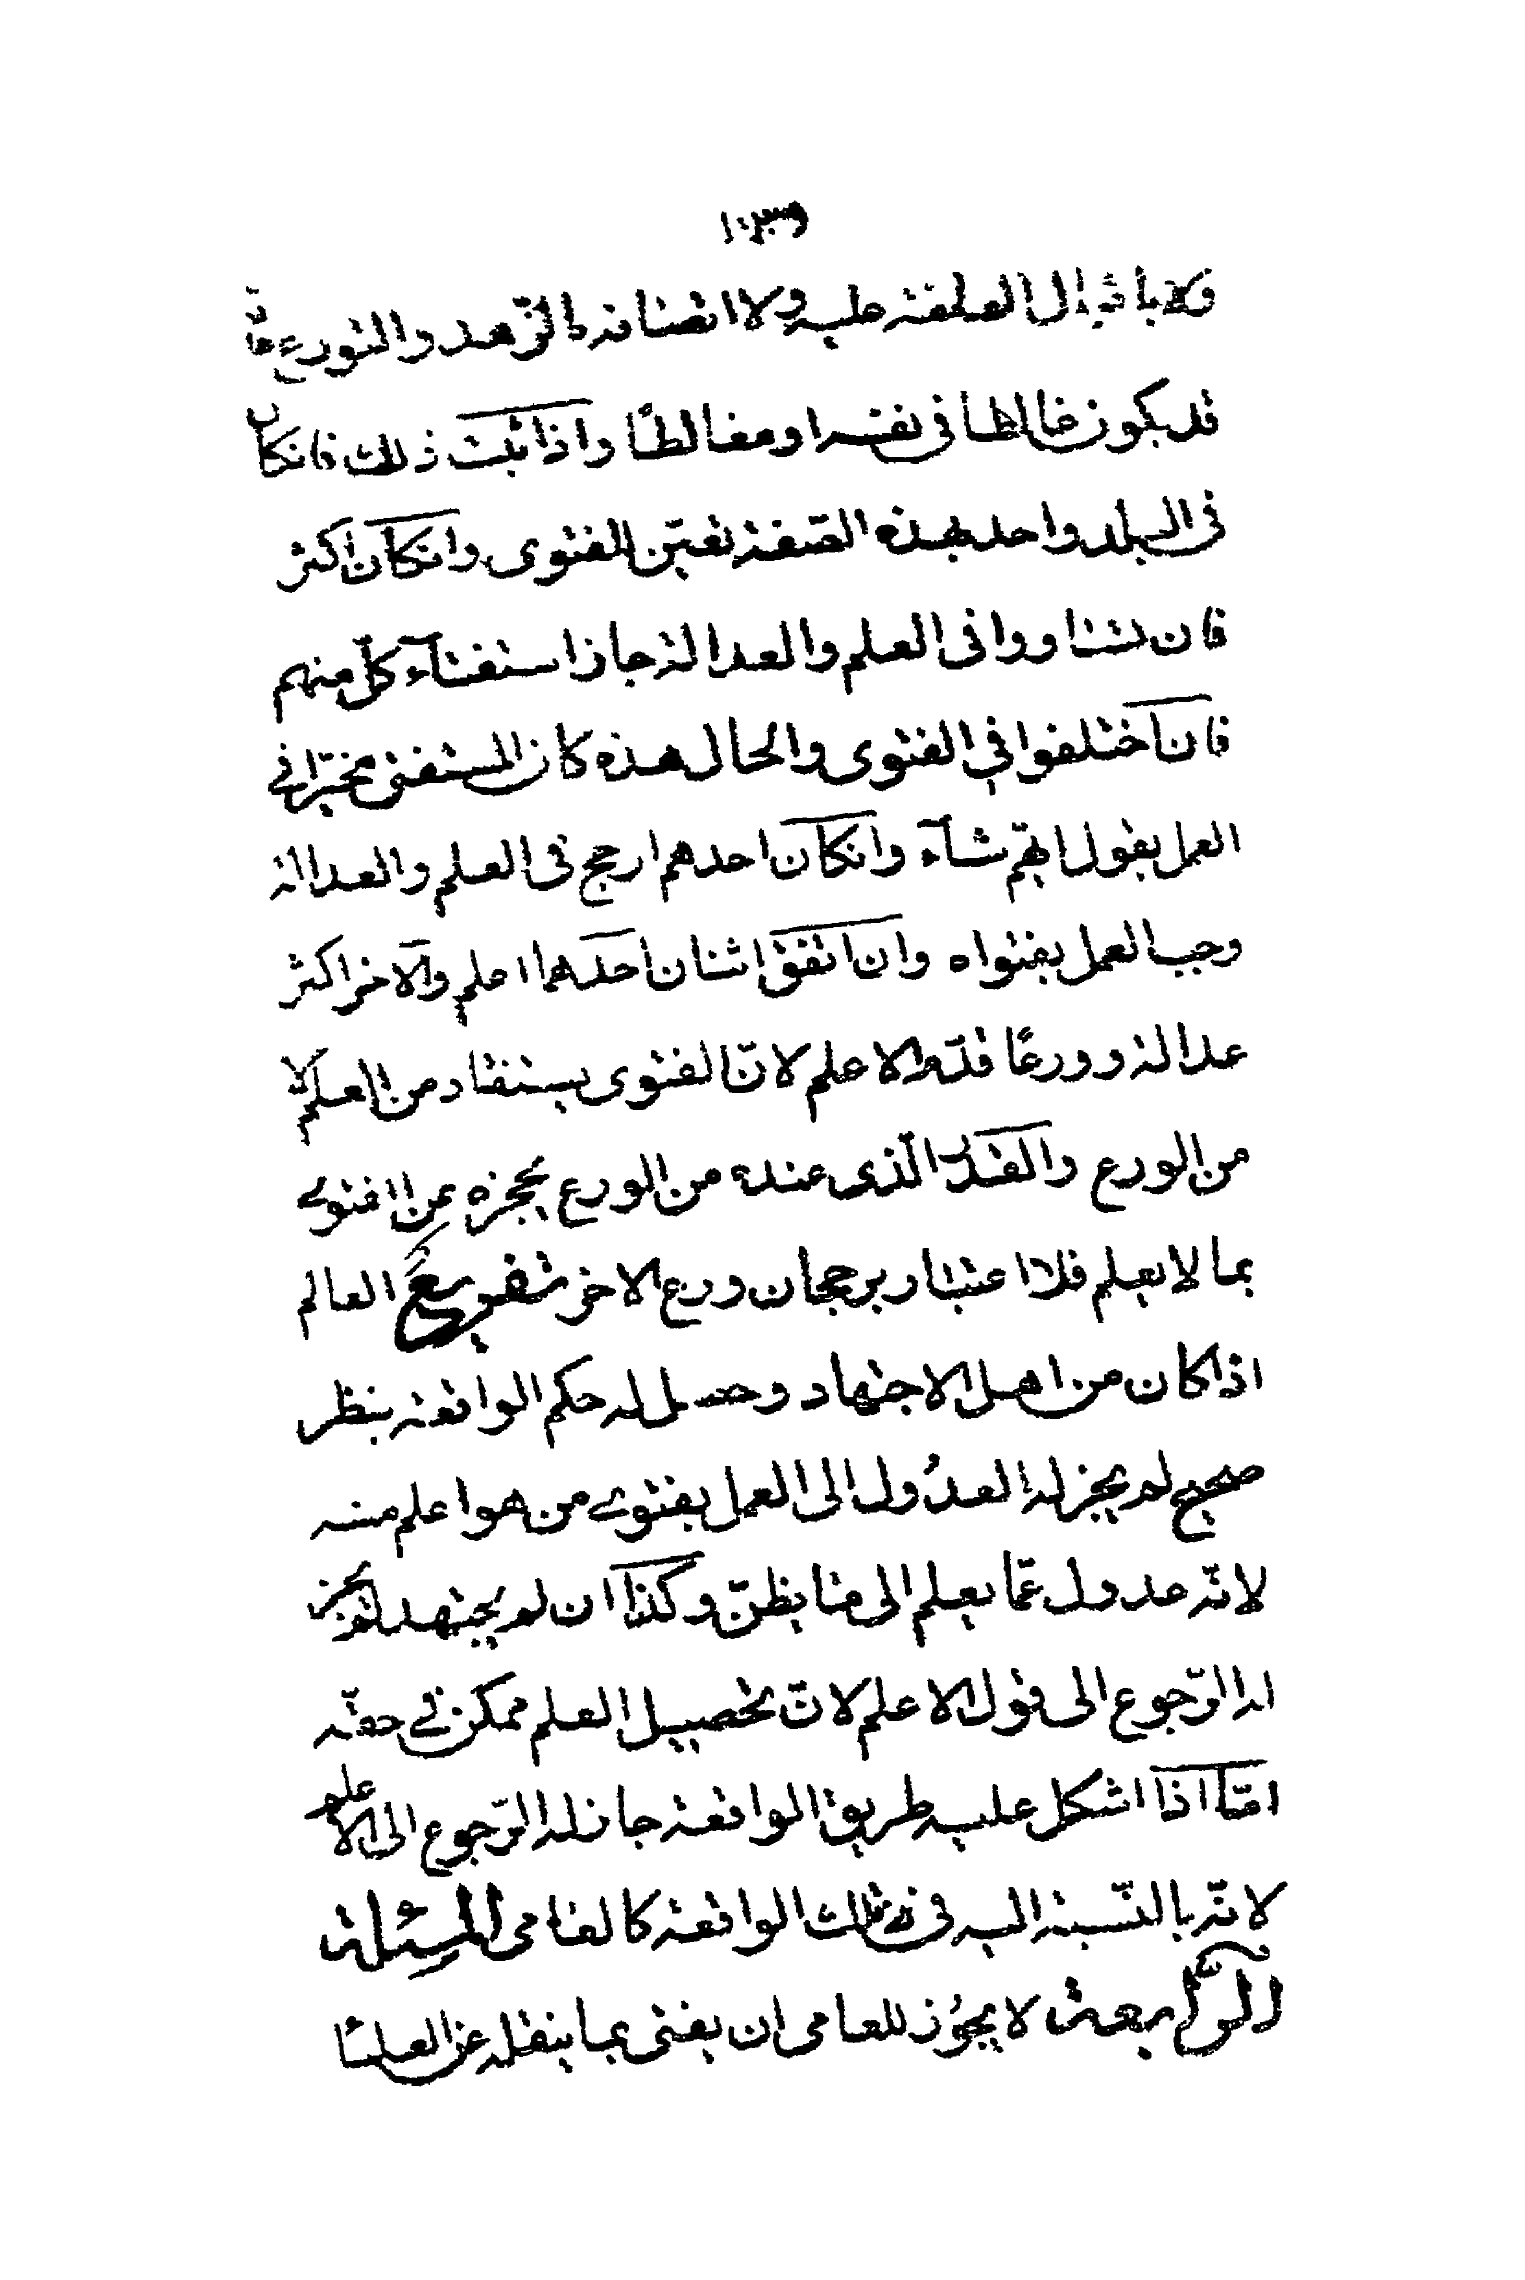 ولا باقبال العامة عليه ولا اتصافه بالزّهد والتورع فانّه
قد يكون غالطا فى نفسه او مغالطًا واذا ثبت ذلك فانكان
فى البلد واحد بهذه الصّفة تعيّن للفتوى وانكان اكثر
فان تساووا فى العلم والعدالة جاز استفتآء كلّ منهم
فان اختلفوا فى الفتوى والحال هذه كان المستفتى مخيّرا فى
العمل بقول ايّهم شآء وانكان احدهم ارجح فى العلم والعدالة
وجب العمل بفتواه وان اتفق اثنان احدهما اعلم والآخر اكثر
عدالة وورعًا قدّم الاعلم لانّ الفتوى يستفاد من العلم لا
من الورع والقدر الّذى عنده من الورع يحجزه عن الفتوى
بما لا يعلم فلا اعتبار برجحان ورع الاخر تفريع العالم
اذا كان من اهل الاجتهاد وحصل له حكم الواقعة بنظر
صحيح لم يجز له العدُول الى العمل بفتوى من هو اعلم منه
لانّه عدول عمّا يعلم الى ما يظنّ وكذا ان لم يجتهد لم يجز
له الرّجوع الى قول الاعلم لانّ تحصيل العلم ممكن فى حقّه
امّا اذا اشكل عليه طريق الواقعة جاز له الرّجوع الى الاعلم
لانّه بالنّسبة اليه فى تلك الواقعة كالعامى المسئلة
الرّابعة لا يجوُز للعامى ان يفتى بما ينقله عن العلما